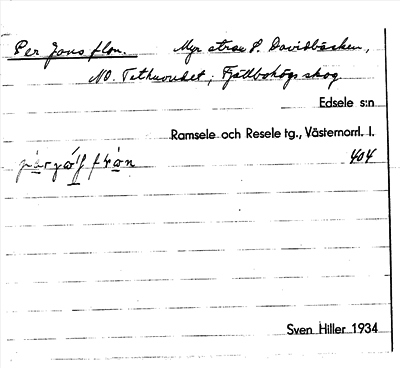 Per Jons flon. Myr strax S. Davidbäcken,
NO. Tethuvudet, Fjällbohögs skog
Edsele s:n
Ramsele och Resele tg., Västernorrl. l.
404
Sven Hiller 1934